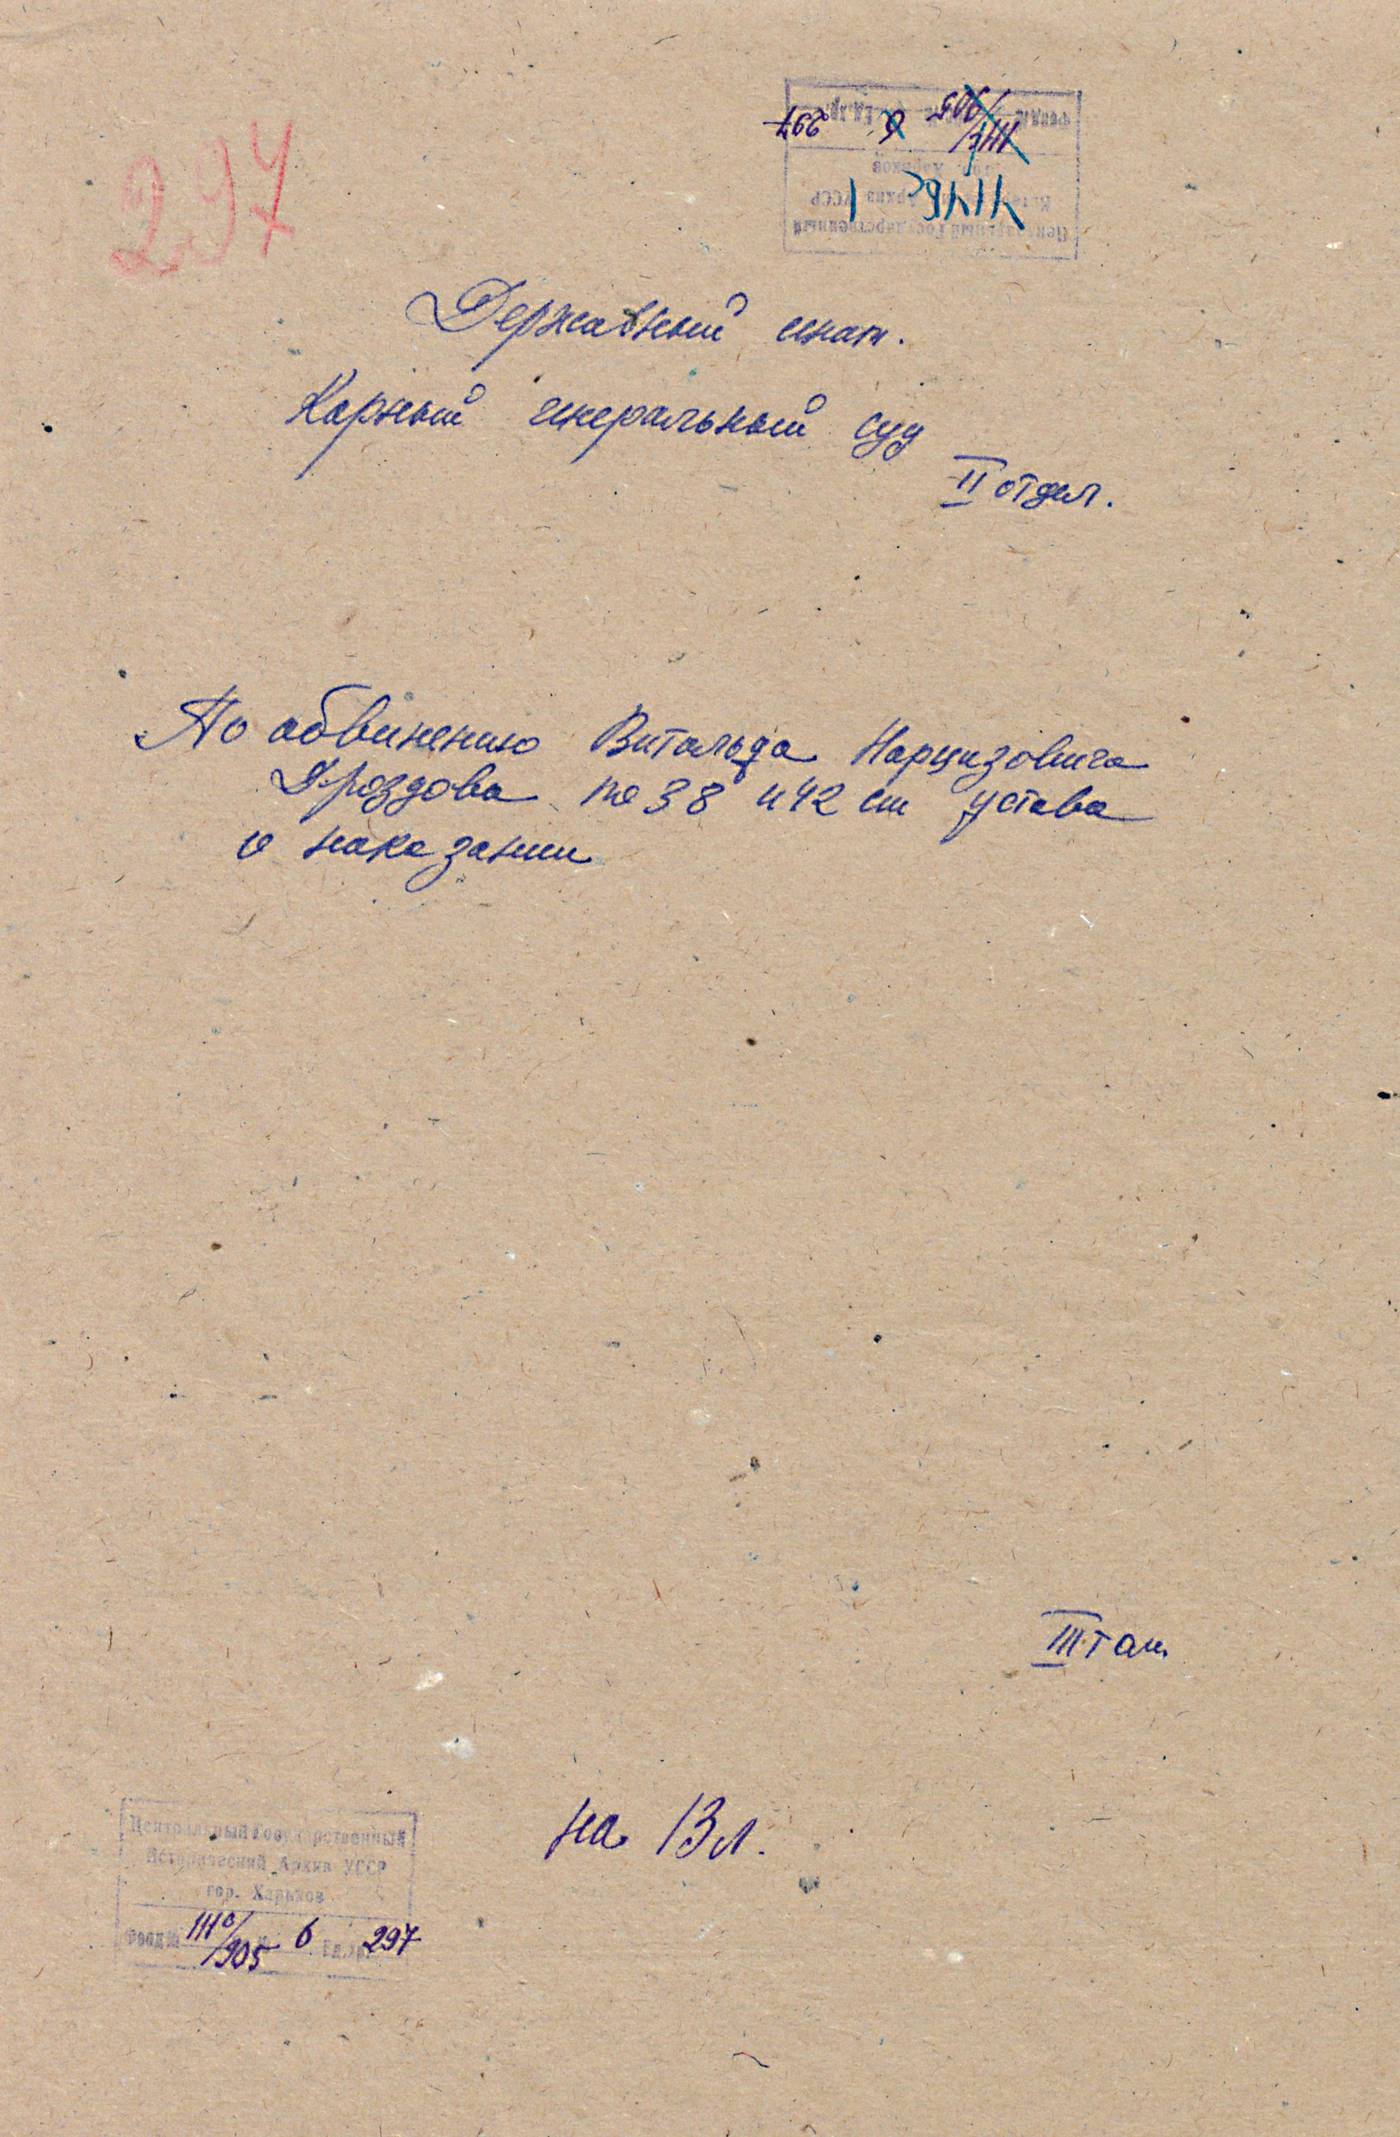 297
Центральный Государственный
Исторический Архив УССР
гор. Харьков
Фонд № III/905 6 Ед.хр. 297
Державный сенат.
Карный генеральный суд
II отдел.
По абвинению Витольда Нарцизовича
Дроздова по 38 и 42 ст устава
о наказании
III т
на 13 л.
Центральный Государственный
Исторический Архив УССР
гор. Харьков
Фонд № 6 Ед.хр. 297